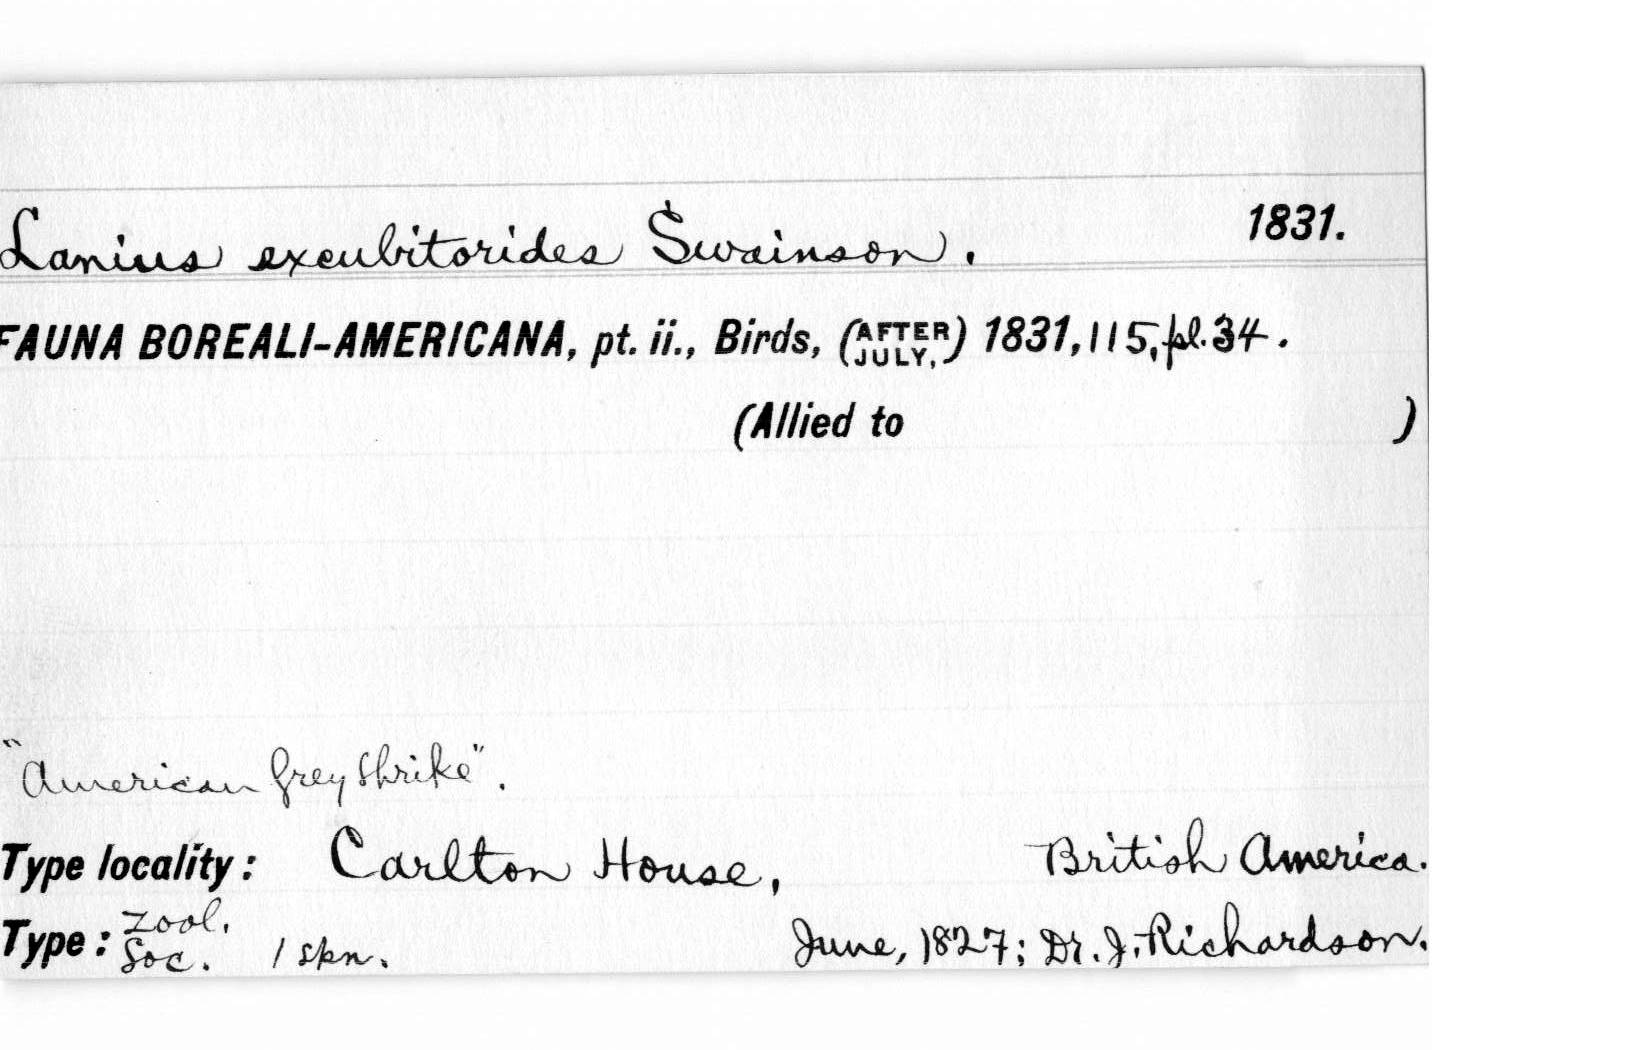 Lanius excubitorides Swainson. 1831.
FAUNA BOREALI-AMERICANA, pt. ii., Birds, (AFTER JULY,) 1831, 115, pl. 34.
(Allied to )
"American Grey Shrike".
Type locality: Carlton House, British America.
Type: Zool. Soc. 1 skn. June, 1827; Dr. J. Richardson.